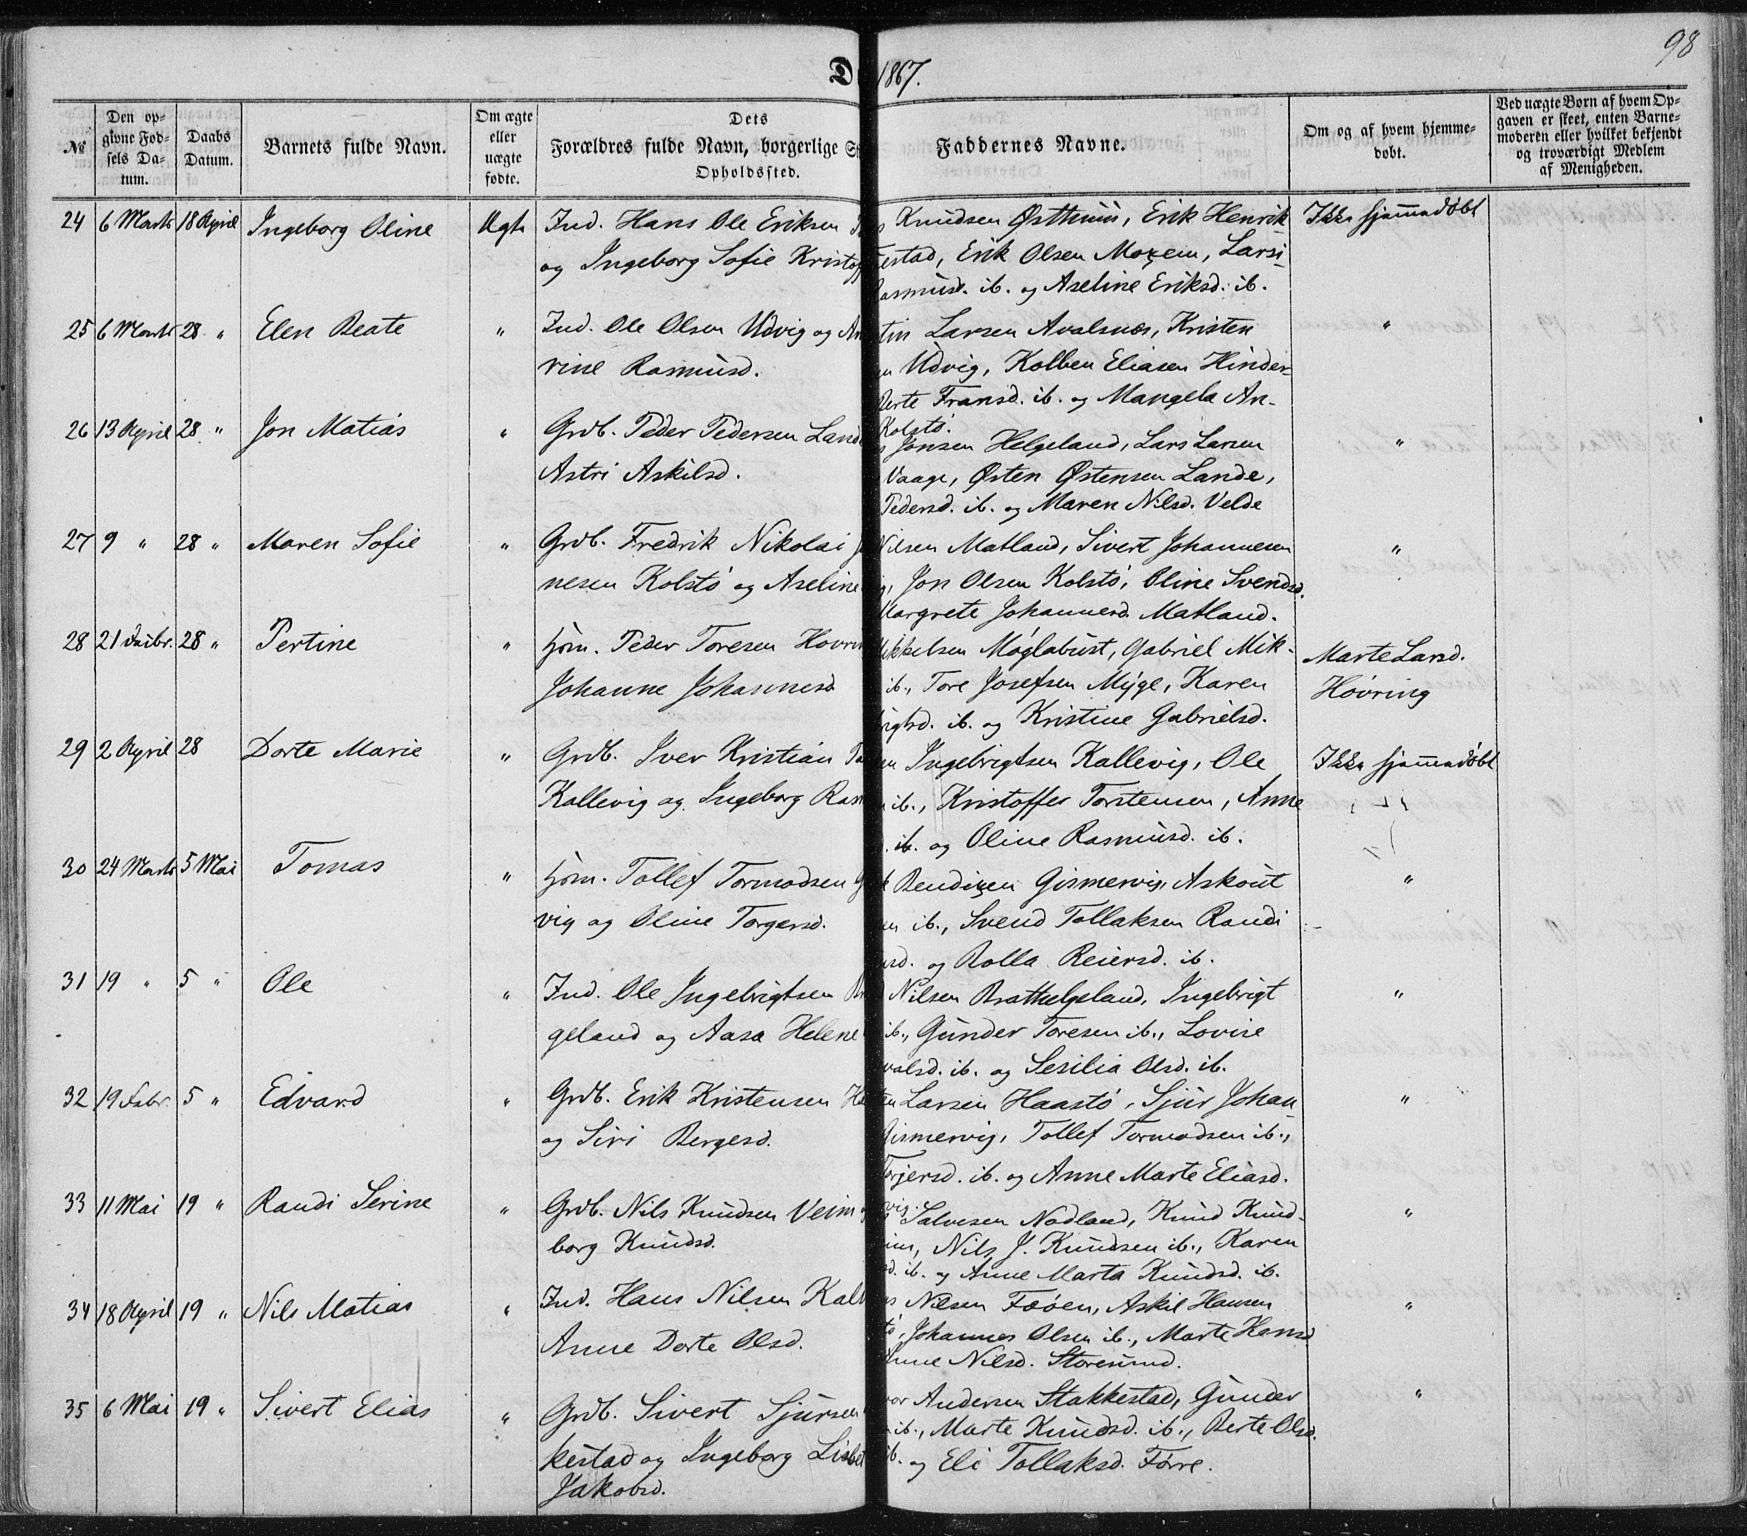 98
1867.
№
Den op-
givne Fød-
sels Da-
tum.
Daabs
Datum.
Barnets fulde Navn.
Om ægte
eller
uægte
fødte.
Dets
Forældres fulde Navn, borgerlige
Opholdssted.
Faddernes Navne.
Om og af hvem hjemme-
døbt.
Ved uægte Børn af hvem Op-
gaven er skeet, enten Barne-
moderen eller hvilket bekjendt
og troværdigt Medlem
af Menigheden.
24 6 Marts 18 April Ingeborg Oline Ægte Ind. Hans Ole Eriksen
og Ingeborg Sofie
Knudsen Østhuus, Erik Henrik
Erik Olsen Moxem, Larsi
ib. og Aseline Eriksd. ib.
Ikke hjemmedøbt
25 6 Marts 28 " Elen Beate " Ind. Ole Olsen Udvig og
vine Rasmusd.
Larsen Avalsnes, Kristen
Udvig, Kolben Eliasen Hinder-
Fransd. ib. og Mangela An-
Kolstø.
"
26 13 April 28 " Jon Matias " Grdb. Peder Pedersen
Astri Askilsd.
Jonsen Helgeland, Lars Larsen
Vaage, Østen Østensen Lande,
Pedersd. ib. og Maren Nilsd. Velde
"
27 9 " 28 " Maren Sofie " Grdb. Fredrik Nikolai
nesen Kolstø og Aseline
Nilsen Matland, Sivert Johannesen
Jon Olsen Kolstø, Oline Svendsd.
Margrete Johannesd. Matland.
"
28 21 Febr. 28 " Pertine " Hsm. Peder Toresen
Johanne Johannesd.
Gabriel Mik-
ib., Tore Josefsen Myge, Karen
ib. og Kristine Gabrielsd.
Marte Larsd.
Høvring
29 2 April 28 Dorte Marie " Grdb. Iver Kristian
Kallevig og Ingeborg
Ingebrigtsen Kallevig, Ole
ib., Kristoffer Torstensen, Anne
ib. og Oline Rasmusd. ib.
Ikke hjemmedøbt
30 24 Marts 5 Mai Tomas " Hsm. Tollef Tormodsen
vig og Oline Torgersd.
Bendixen Gismervig, Askout
ib., Svend Tollaksen Randi
og Bolla Reiersd. ib.
"
31 19 " 5 " Ole " Ind. Ole Ingebrigtsen
geland og Aasa Helene
Nilsen Brathelgeland, Ingebrigt
ib., Gunder Toresen ib., Lovise
ib. og Sesilia Olsd. ib.
"
32 19 Febr. 5 " Edvard " Grdb. Erik Kristensen
og Siri Bergesd.
Larsen Haastø, Sjur Johan-
Gismervig, Tollef Tormodsen ib.,
Torjersd. ib. og Anne Marte Eliasd.
"
33 11 Mai 19 " Randi Serine " Grdb. Nils Knudsen Veim
borg Knudsd.
Salvesen Nodland, Knud Knud-
Nils J. Knudsen ib., Karen
ib. og Anne Marta Knudsd. ib.
"
34 18 April 19 " Nils Matias " Ind. Hans Nilsen
Anne Dorte Olsd.
Nilsen Feøen, Askil Hansen
Johannes Olsen ib., Marte Hansd
Nilsd. Storesund.
"
35 6 Mai 19 " Sivert Elias " Grdb. Sivert Sjursen
kestad og Ingeborg
Jakobsd.
Andersen Stakkestad, Gunder
ib., Marte Knudsd. ib., Berte Olsd.
og Eli Tollaksd. Førre.
"